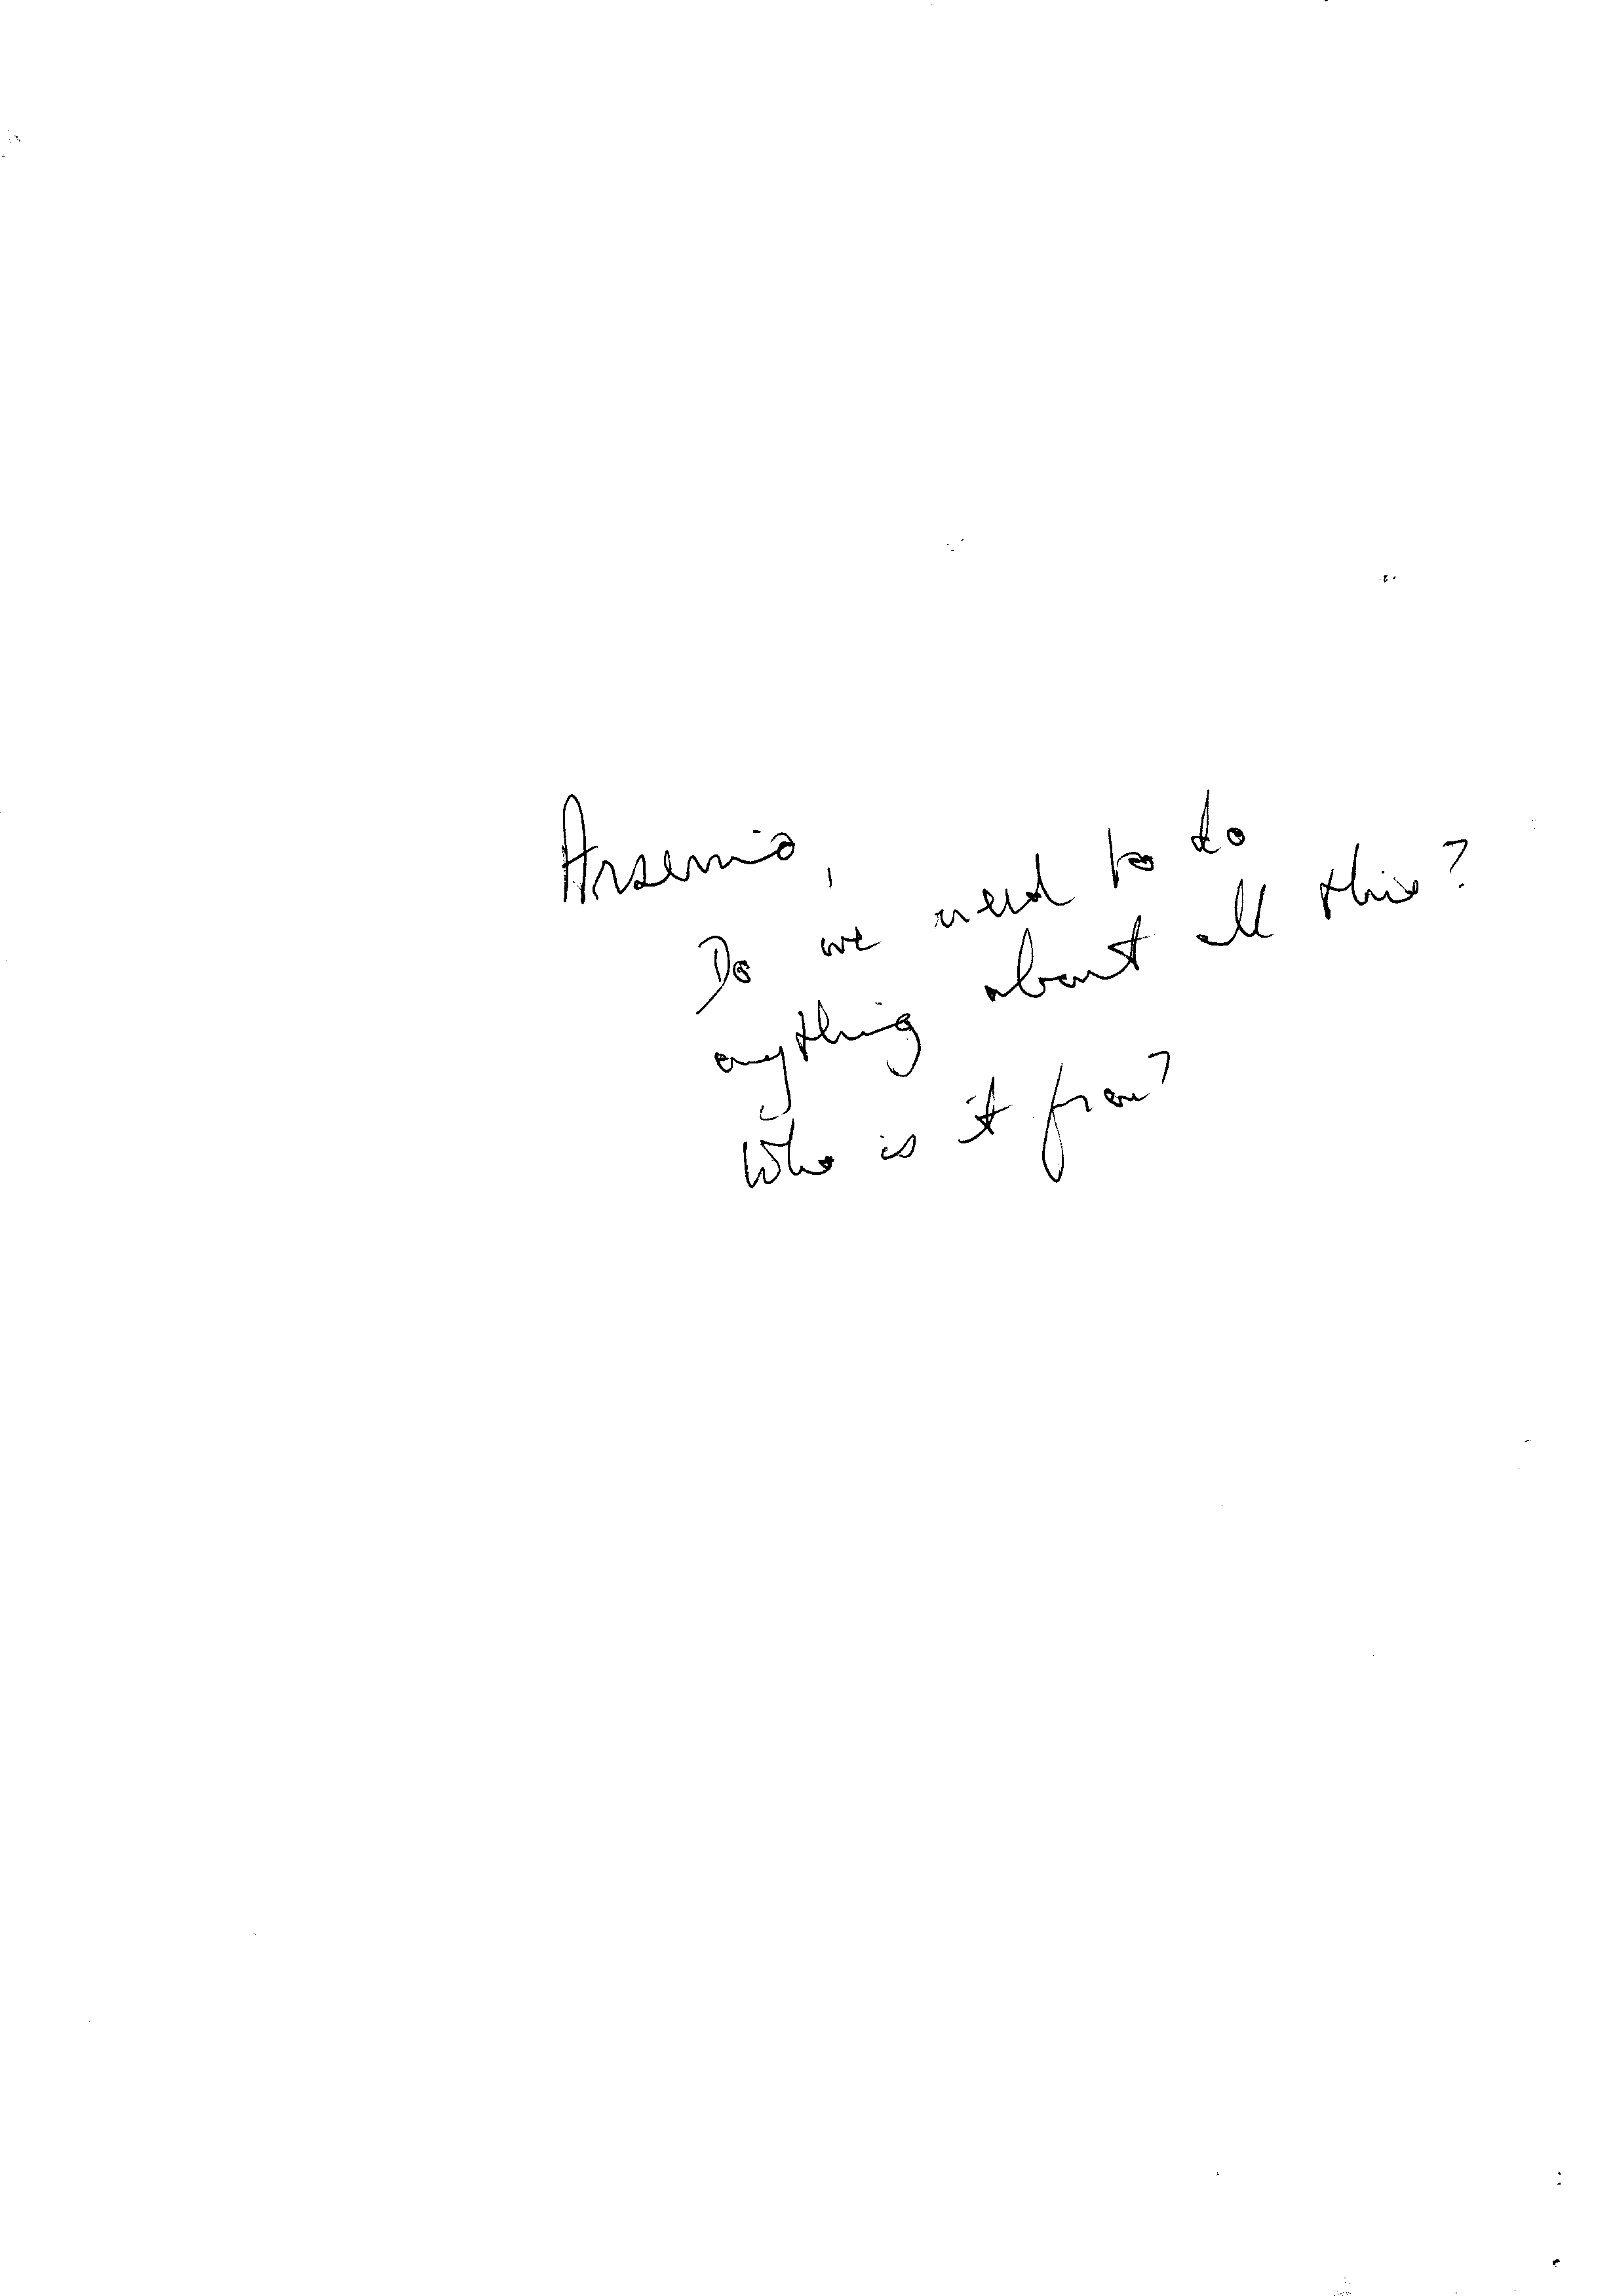 Arsenio,
Do we need to do
anything about all this?
Who is it from?